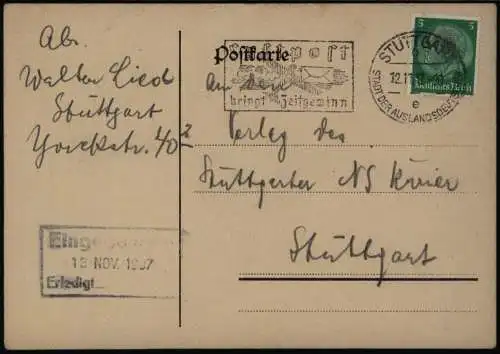 Abs.
Walter Lied
Stuttgart
Yorckstr. 40
Eingegangen
13 NOV. 1937
Erledigt
Postkarte
Luftpost
bringt Zeitgewinn
STUTTGART
12.11.37
e
STADT DER AUSLANDSDEUTSCHEN
5
Deutsches Reich
An den
Verlag des
Stuttgarter NS Kurier
Stuttgart